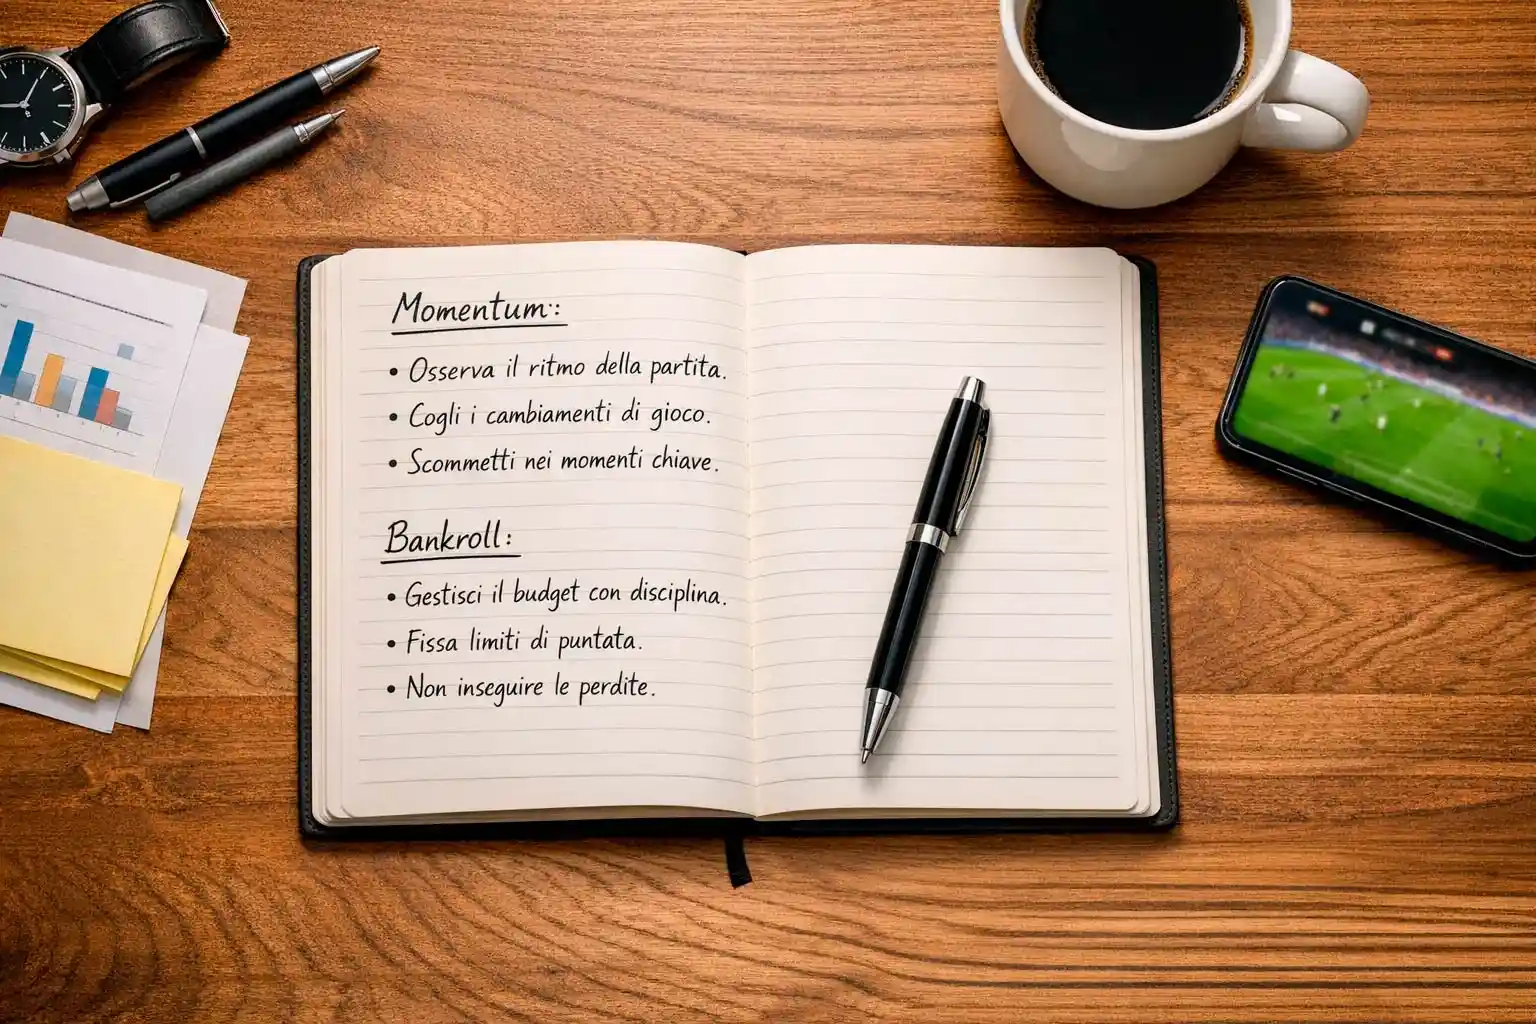 Momentum::
• Osserva il ritmo della partita.
• Cogli i cambiamenti di gioco.
• Scommetti nei momenti chiave.
Bankroll:
• Gestisci il budget con disciplina.
• Fissa limiti di puntata.
• Non inseguire le perdite.